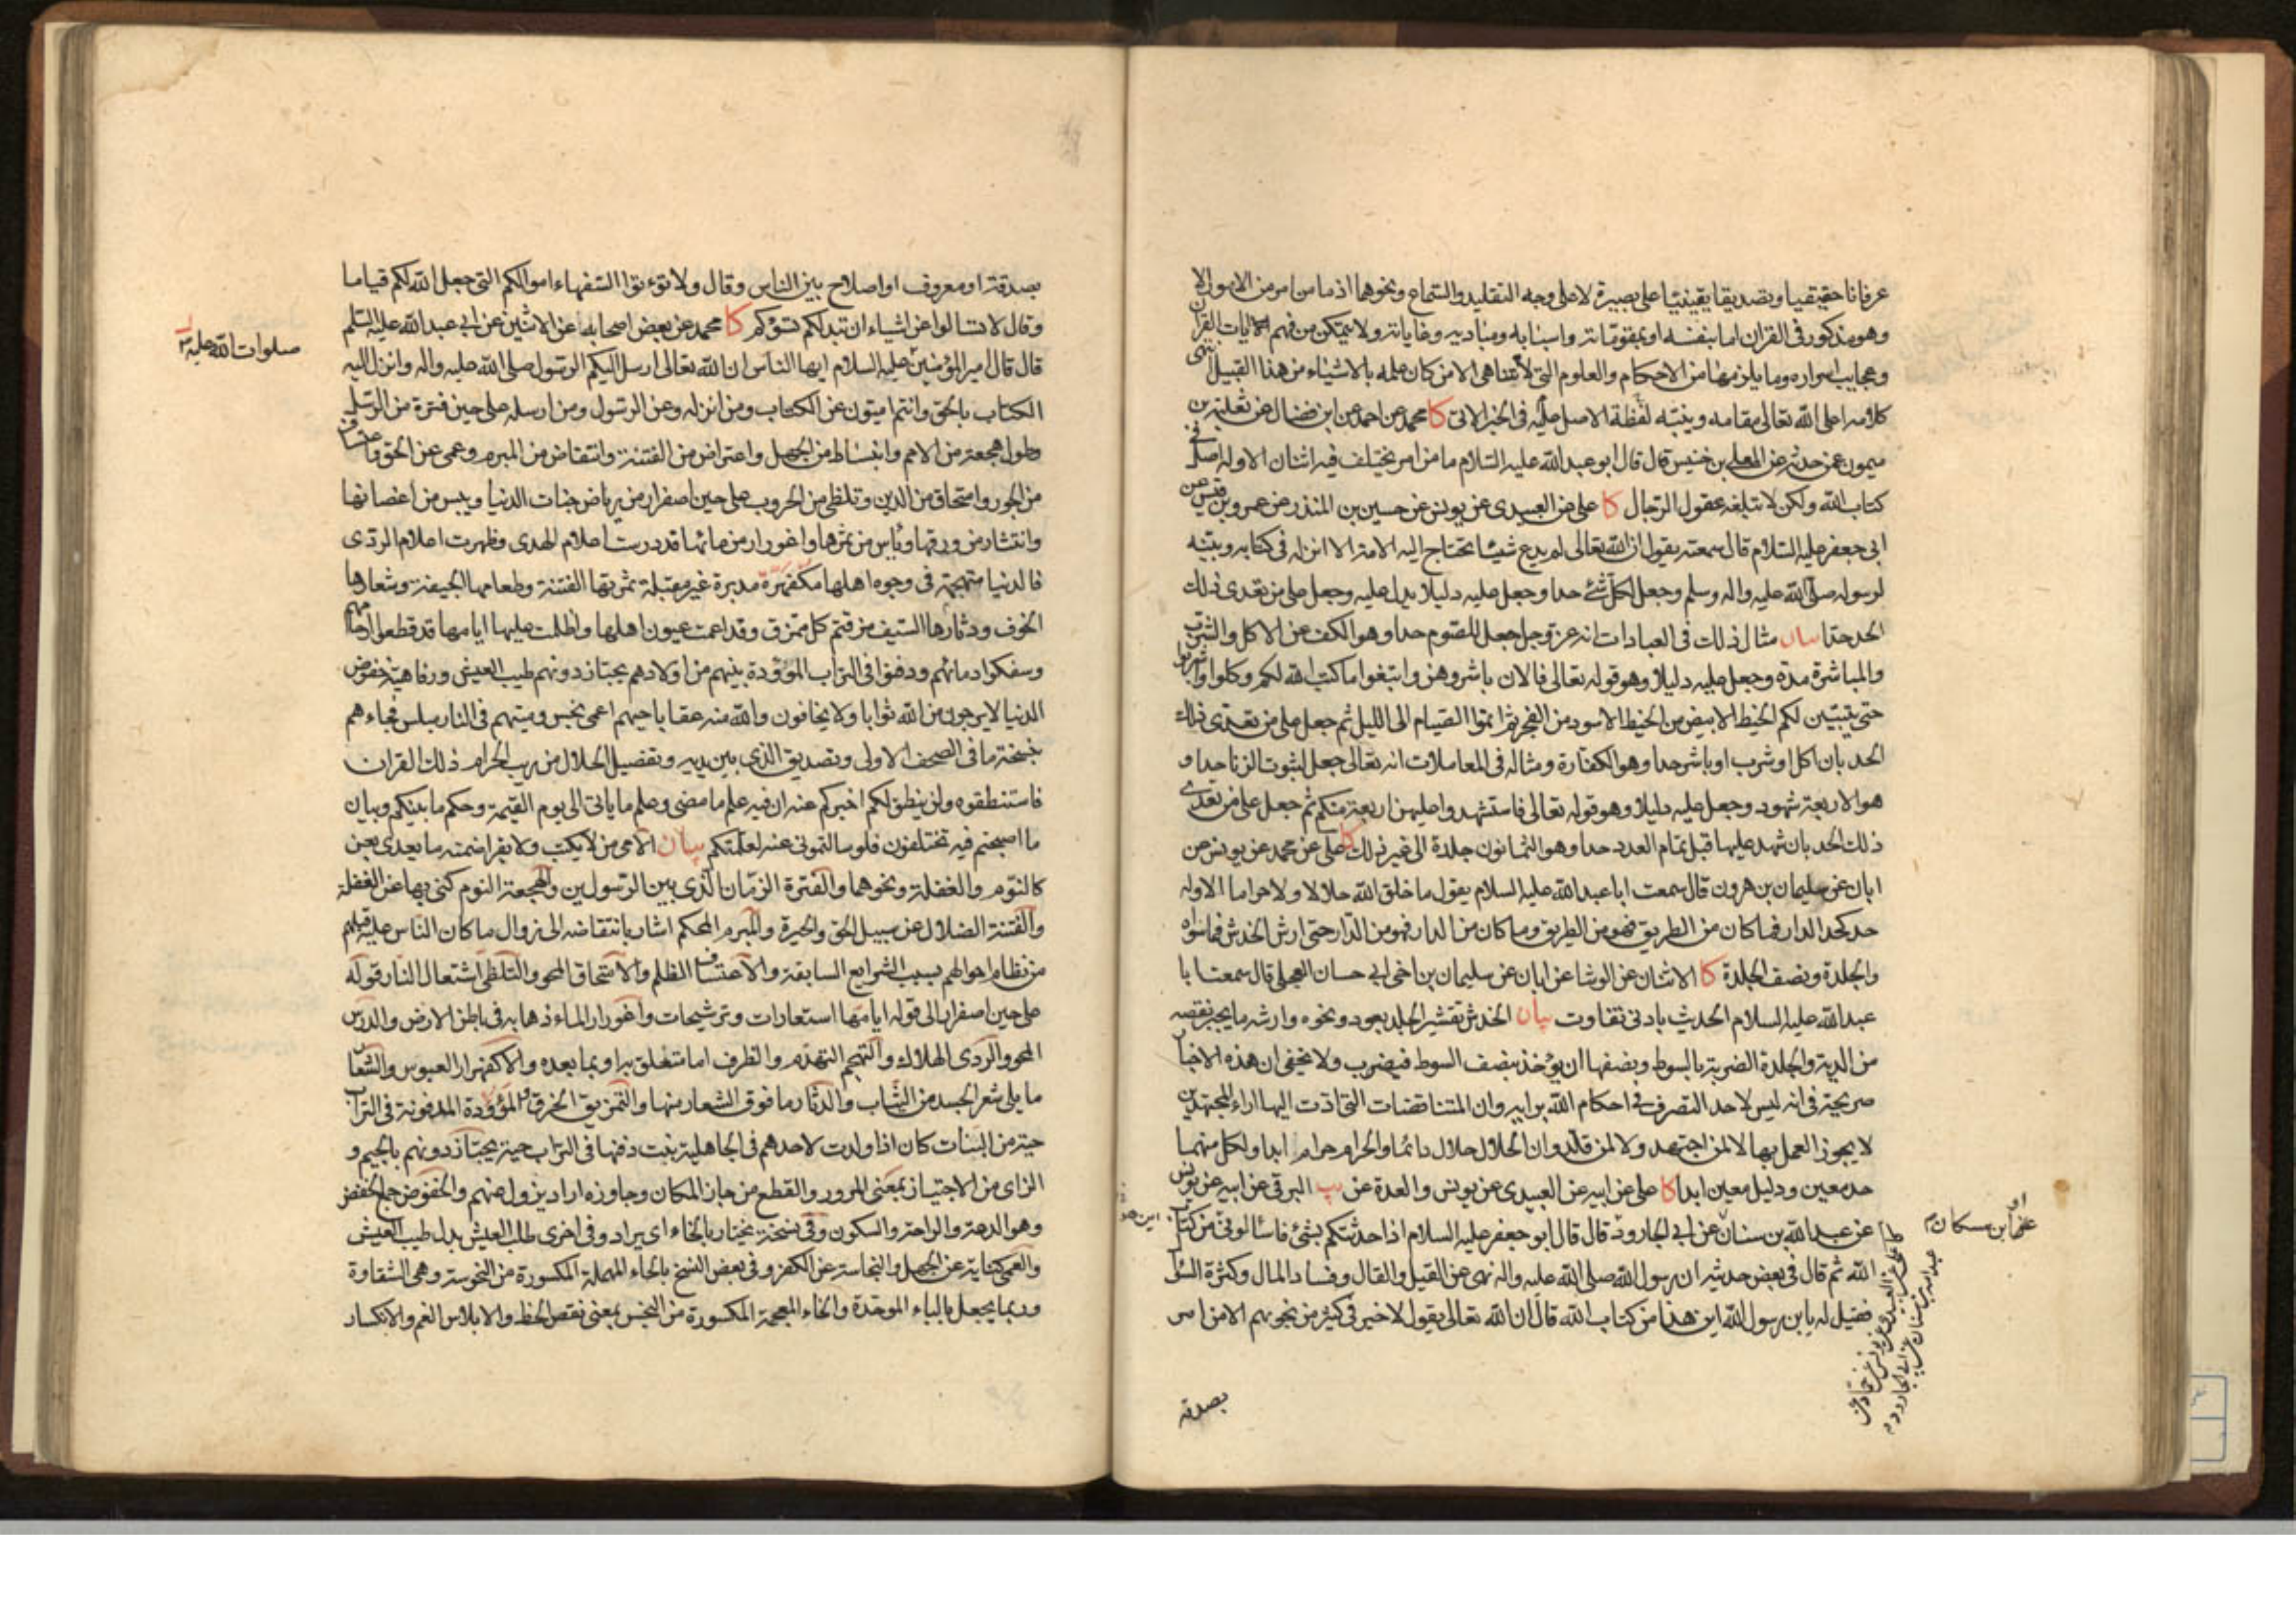 عرفانا حقيقيا وتصديقا يقينيا على بصيرة لا على وجه التقليد والسماع ونحوهما اذ ما من امر من الامور الا
وهو مذكور في القران اما بنفسه او بمقوماته واسبابه ومباديه وغاياته ولا يتمكن من فهم الايات القران
وعجايب اسراره وما يلزمها من الاحكام والعلوم التي لا تتناهى الا من كان علمه بالاشياء من هذا القبيل انتهى
كلامه اعلى الله تعالى مقامه وينبه لفظة الاصل عليه في الخبر الاتي كا محمد عن احمد عن ابن فضال عن ثعلبة بن
ميمون عمن حدثه عن المعلى بن خنيس قال قال ابو عبد الله عليه السلام ما من امر يختلف فيه اثنان الا وله اصل في
كتاب الله ولكن لا تبلغه عقول الرجال كا على عن العبيدى عن يونس عن حسين بن المنذر عن عمرو بن قيس عن
ابى جعفر عليه السلام قال سمعته يقول ان الله تعالى لم يدع شيئا يحتاج اليه الامة الا انزله في كتابه وبينه
لرسوله صلى الله عليه واله وسلم وجعل لكل شئ حدا وجعل عليه دليلا يدل عليه وجعل على من تعدى ذلك
الحد حدا بيان مثال ذلك في العبادات انه عز وجل جعل للصوم حدا وهو الكف عن الاكل والشرب
والمباشرة مدة وجعل عليه دليلا وهو قوله تعالى فالان باشروهن وابتغوا ما كتب الله لكم وكلوا واشربوا
حتى يتبين لكم الخيط الابيض من الخيط الاسود من الفجر ثم اتموا الصيام الى الليل ثم جعل على من تعدى ذلك
الحد بان اكل او شرب او باشر حدا وهو الكفارة ومثاله في المعاملات انه تعالى جعل لثبوت الزنا حدا و
هو الاربعة شهود وجعل عليه دليلا وهو قوله تعالى فاستشهدوا عليهن اربعة منكم ثم جعل على من تعدى
ذلك الحد بان شهد عليها قبل تمام العدد حدا وهو الثمانون جلدة الى غير ذلك كا على عن محمد عن يونس عن
ابان عن سليمان بن هرون قال سمعت ابا عبد الله عليه السلام يقول ما خلق الله حلالا ولا حراما الا وله
حد كحد الدار فما كان من الطريق فهو من الطريق وما كان من الدار فهو من الدار حتى ارش الخدش فما سواه
والجلدة ونصف الجلدة كا الاثنان عن الوشا عن ابان عن سليمان بن اخى ابي حسان العجلي قال سمعت ابا
عبد الله عليه السلام الحديث بادنى تفاوت بيان الخدش تقشير الجلد بعود ونحوه وارشه ما يجبر نقصه
من الدية والجلدة الضربة بالسوط ونصفها ان يؤخذ بنصف السوط فيضرب ولا يخفى ان هذه الاخبار
صريحة في انه ليس لاحد التصرف في احكام الله برايه وان المتناقضات التي ادت اليها اراء المجتهدين
لا يجوز العمل بها الا لمن اجتهد ولا لمن قلد وان الحلال حلال دائما والحرام حرام ابدا ولكل منهما
حد معين ودليل معين ابدا كا على عن ابيه عن العبيدى عن يونس والعدة عن يب البرقى عن ابيه عن يونس
عن عبد الله بن سنان عن ابي الجارود قال قال ابو جعفر عليه السلام اذا حدثتكم بشئ فاسالونى من كتاب
الله ثم قال في بعض حديثه ان رسول الله صلى الله عليه واله نهى عن القيل والقال وفساد المال وكثرة السؤال
فقيل له يا بن رسول الله اين هذا من كتاب الله قال ان الله تعالى يقول لا خير في كثير من نجويهم الا من امر
بصدقة
ابن مسكان
بصدقة او معروف او اصلاح بين الناس وقال ولا تؤتوا السفهاء اموالكم التى جعل الله لكم قياما
وقال لا تسالوا عن اشياء ان تبد لكم تسؤكم كا محمد عن بعض اصحابه عن الاثنين عن ابى عبد الله عليه السلم
قال قال امير المؤمنين عليه السلام ايها الناس ان الله تعالى ارسل اليكم الرسول صلى الله عليه واله وانزل اليه
الكتاب بالحق وانتم اميون عن الكتاب ومن انزله وعن الرسول ومن ارسله على حين فترة من الرسل
وطول هجعة من الامم وانبساط من الجهل واعتراض من الفتنة وانتقاض من المبرم وعمى عن الحق واعتساف
من الجور وامتحاق من الدين وتلظى من الحروب على حين اصفرار من رياض جنات الدنيا ويبس من اغصانها
وانتشار من ورقها وياس من ثمرها واغورار من مائها قد درست اعلام الهدى وظهرت اعلام الردى
فالدنيا متهجمة فى وجوه اهلها مكفهرة مدبرة غير مقبلة ثمرتها الفتنة وطعامها الجيفة وشعارها
الخوف ودثارها السيف مزقتم كل ممزق وقد اعمت عيون اهلها واظلمت عليها ايامها قد قطعوا ارحامهم
وسفكوا دمائهم ودفنوا فى التراب المؤودة بينهم من اولادهم يجتاز دونهم طيب العيش ورفاهية خفوض
الدنيا لا يرجون من الله ثوابا ولا يخافون والله منه عقابا حيهم اعمى نجس وميتهم فى النار مبلس فجاءهم
بنسخة ما فى الصحف الاولى وتصديق الذى بين يديه وتفصيل الحلال من ريب الحرام ذلك القران
فاستنطقوه ولن ينطق لكم اخبركم عنه ان فيه علم ما مضى وعلم ما ياتى الى يوم القيمة وحكم ما بينكم وبيان
ما اصبحتم فيه تختلفون فلو سالتمونى عنه لعلمتكم بيان الامى من لا يكتب ولا يقرا ضمنه ما يعدى بعن
كالنوم والغفلة ونحوهما والفترة الزمان الذى بين الرسولين والهجعة النوم كنى بها عن الغفلة
والفتنة الضلال عن سبيل الحق والحيرة والمبرم المحكم اشار بانتقاضه الى زوال ما كان الناس عليه قبلهم
من نظام احوالهم بسبب الشرايع السابقة والاعتساف الظلم والامتحاق المحو والتلظى اشتعال النار قوله
على حين اصفرار الى قوله ايامها استعارات وترشيحات واغورار الماء ذهابه فى باطن الارض والدرس
المحو والردى الهلاك والتهجم التهدم والظرف اما متعلق به او بما بعده والاكفهرار العبوس والشعار
ما يلى شعر الجسد من الثياب والدثار ما فوق الشعار منها والتمزيق الخرق والمؤودة المدفونة فى التراب
حية من البنات كان اذا ولدت لاحدهم فى الجاهلية بنت دفنها فى التراب حية يجتاز دونهم بالجيم و
الزاى من الاجتياز بمعنى المرور والقطع من جاز المكان وجاوزه اراد يزول عنهم والخفوض جمع الخفض
وهو الدعة والراحة والسكون وفى نسخة يختار بالخاء اى يراد وفى اخرى طلب العيش بدل طيب العيش
والعمى كناية عن الجهل والنجاسة عن الكفر وفى بعض النسخ بالحاء المهملة المكسورة من النحوسة وهى الشقاوة
وربما يجعل بالباء الموحدة والخاء المعجمة المكسورة من البخس بمعنى نقص الحظ والابلاس الغم والانكسار
صلوات الله عليه